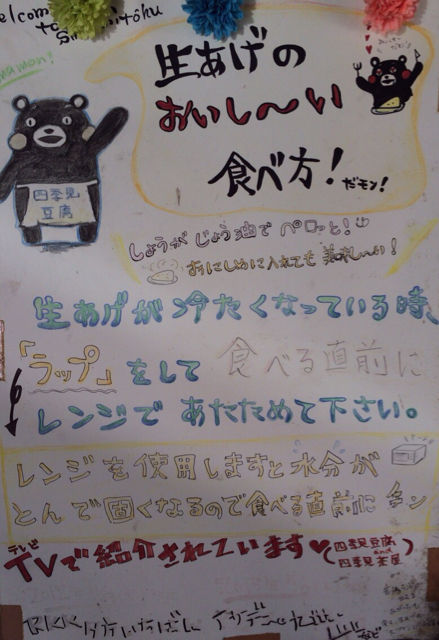 生あげの
おいし〜い
食べ方!
だモン!
四季見
豆腐
しょうがじょう油でペロッと!
おにしめに入れても美味し〜い!
生あげが冷たくなっている時、
「ラップ」をして食べる直前に
レンジであたためて下さい。
レンジを使用しますと水分が
とんで固くなるので食べる直前に
テレビ
TVで紹介されています♥(四季見豆腐
and
四季見茶屋)